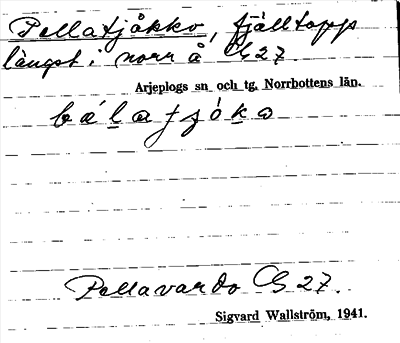 Pellatjåkko, fjälltopp
längst i norr å G 27.
Arjeplogs sn och tg, Norrbottens län.
Pellavardo G 27.
Sigvard Wallström, 1941.